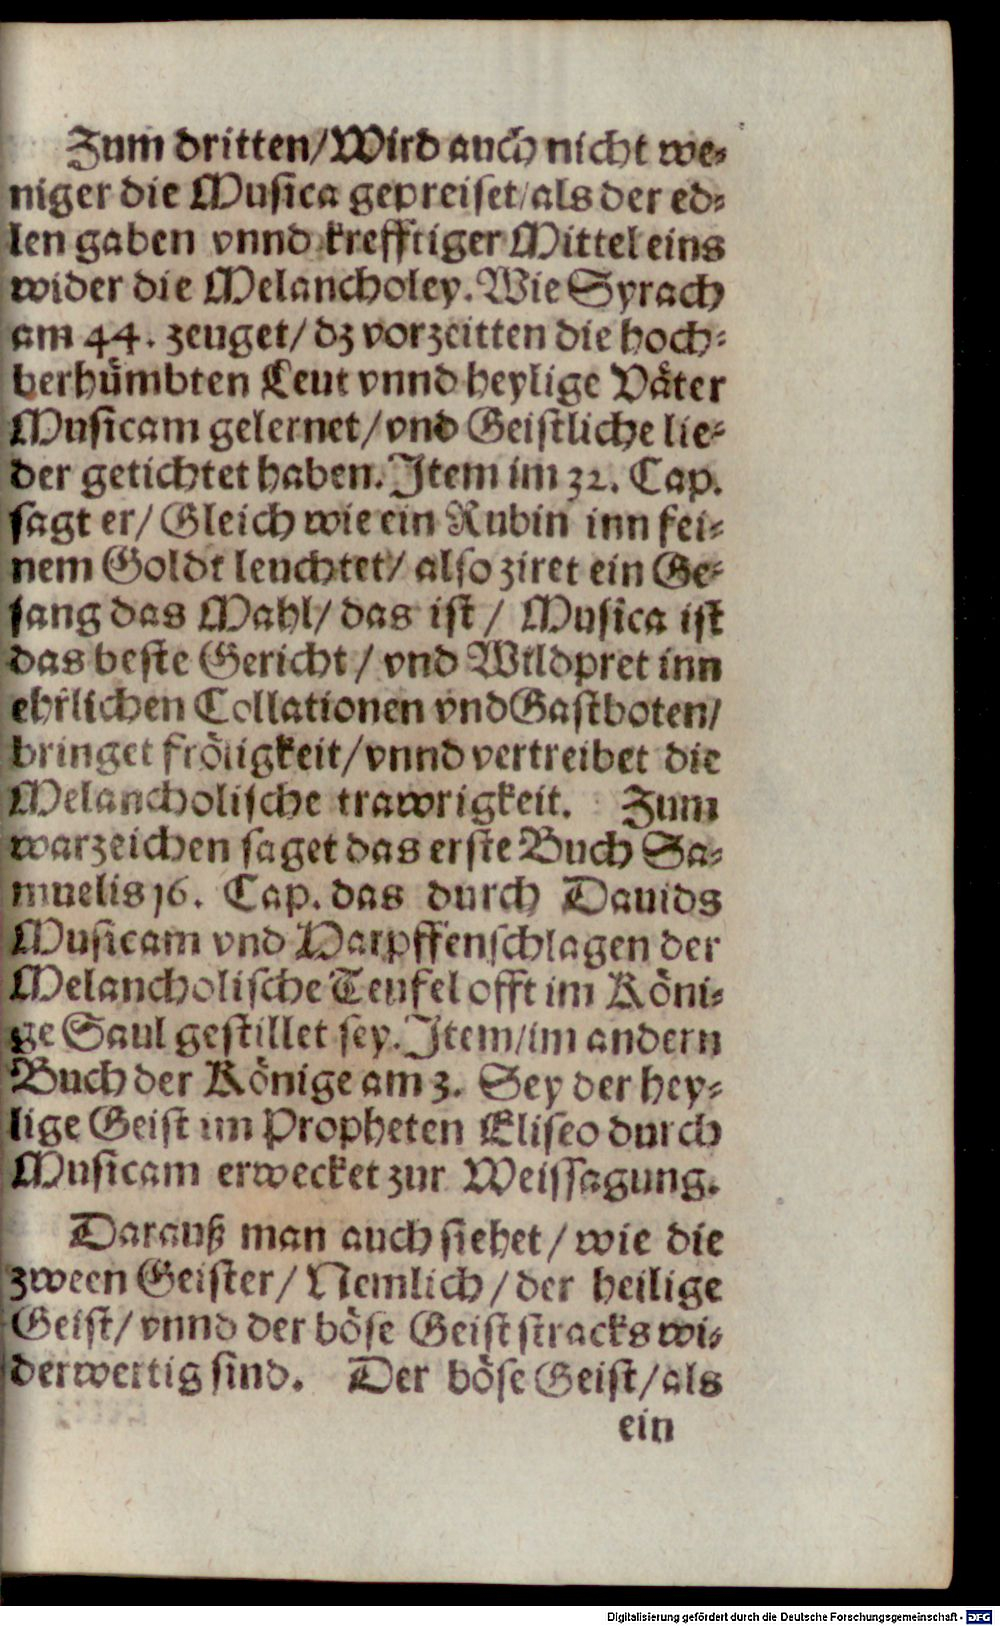 Zum dritten/Wird auch nicht we⸗
niger die Musica gepreiset/als der ed⸗
len gaben vnnd krefftiger Mittel eins
wider die Melancholey. Wie Syrach
am 44. zeuget/ dz vorzeitten die hoch⸗
berhuͤmbten Leut vnnd heylige Vaͤter
Musicam gelernet/vnd Geistliche lie⸗
der getichtet haben. Item im 32. Cap.
sagt er/ Gleich wie ein Rubin inn fei⸗
nem Goldt leuchtet/ also ziret ein Ge⸗
sang das Mahl/ das ist / Musica ist
das beste Gericht / vnd Wildpret inn
ehrlichen Collationen vnd Gastboten/
bringet froͤligkeit/vnnd vertreibet die
Melancholische trawrigkeit. Zum
warzeichen saget das erste Buch Sa⸗
muelis 16. Cap. das durch Dauids
Musicam vnd Harpffenschlagen der
Melancholische Teufel offt im Koͤni⸗
ge Saul gestillet sey. Item/im andern
Buch der Koͤnige am 3. Sey der hey⸗
lige Geist im Propheten Eliseo durch
Musicam erwecket zur Weissagung.
Darauß man auch siehet / wie die
zween Geister/ Nemlich / der heilige
Geist/ vnnd der boͤse Geist stracks wi⸗
derwertig sind. Der boͤse Geist/als
ein
Digitalisierung gefördert durch die Deutsche Forschungsgemeinschaft - DFG